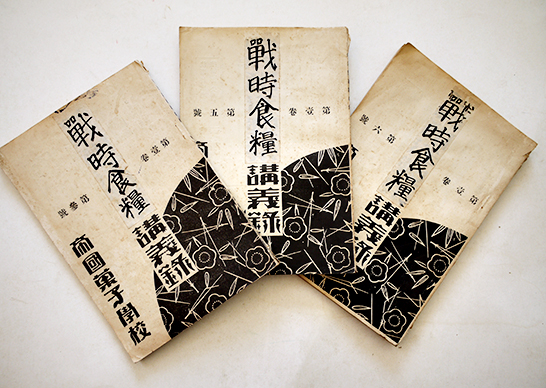 戰時食糧
講義錄
第壹卷
第參號
帝國菓子學校
戰時食糧
講義錄
第壹卷
第五號
戰時食糧
講義錄
第壹卷
第六號